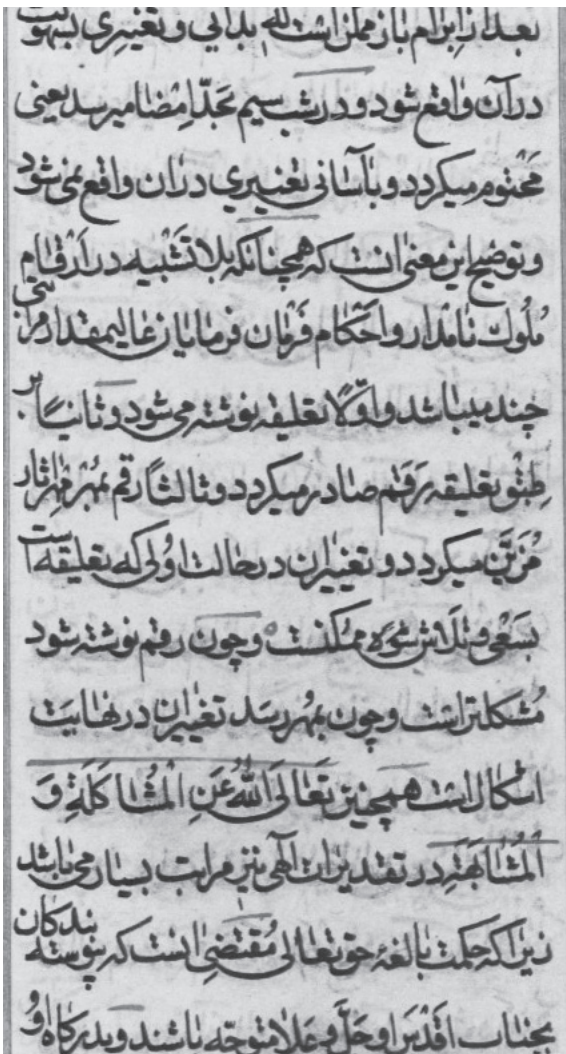 بعد از ابرام باز ممکن است که بدائی و تغییری بسهولت
در آن واقع شود و در شب سیم بحدّ امضا میرسد یعنی
محتوم میکردد و بآسانی تغییری در ان واقع نمی شود
و توضیح این معنی انست که همچنانکه بلا تشبیه در ارقام
ملوک نامدار و احکام فرمان فرمایان عالیمقدار مراتبی
چند میباشد و اوّلا تعلیقه نوشته می شود و ثانیاً بر
طبق تعلیقه رقم صادر میکردد و ثالثاً رقم بمهر مهر اثار
مزیّن میکردد و تغییر ان در حالت اولی که تعلیقه است
بسعی و تلاش ممکنست و چون رقم نوشته شود
مشکلتر است و چون بمهر رسد تغییر ان در نهایت
اشکال است همچنین تَعَالَی اللّهُ عَنِ الْمُشَاکَلَةِ وَ
الْمُشَابَهَةِ در تقدیرات الهی نیز مراتب بسیار می باشد
زیرا که حکمت بالغهٔ حق تعالی مقتضی انست که پیوسته بندکان
بجناب اقدس او جلّ و علا متوجّه باشند و بدرکاه او